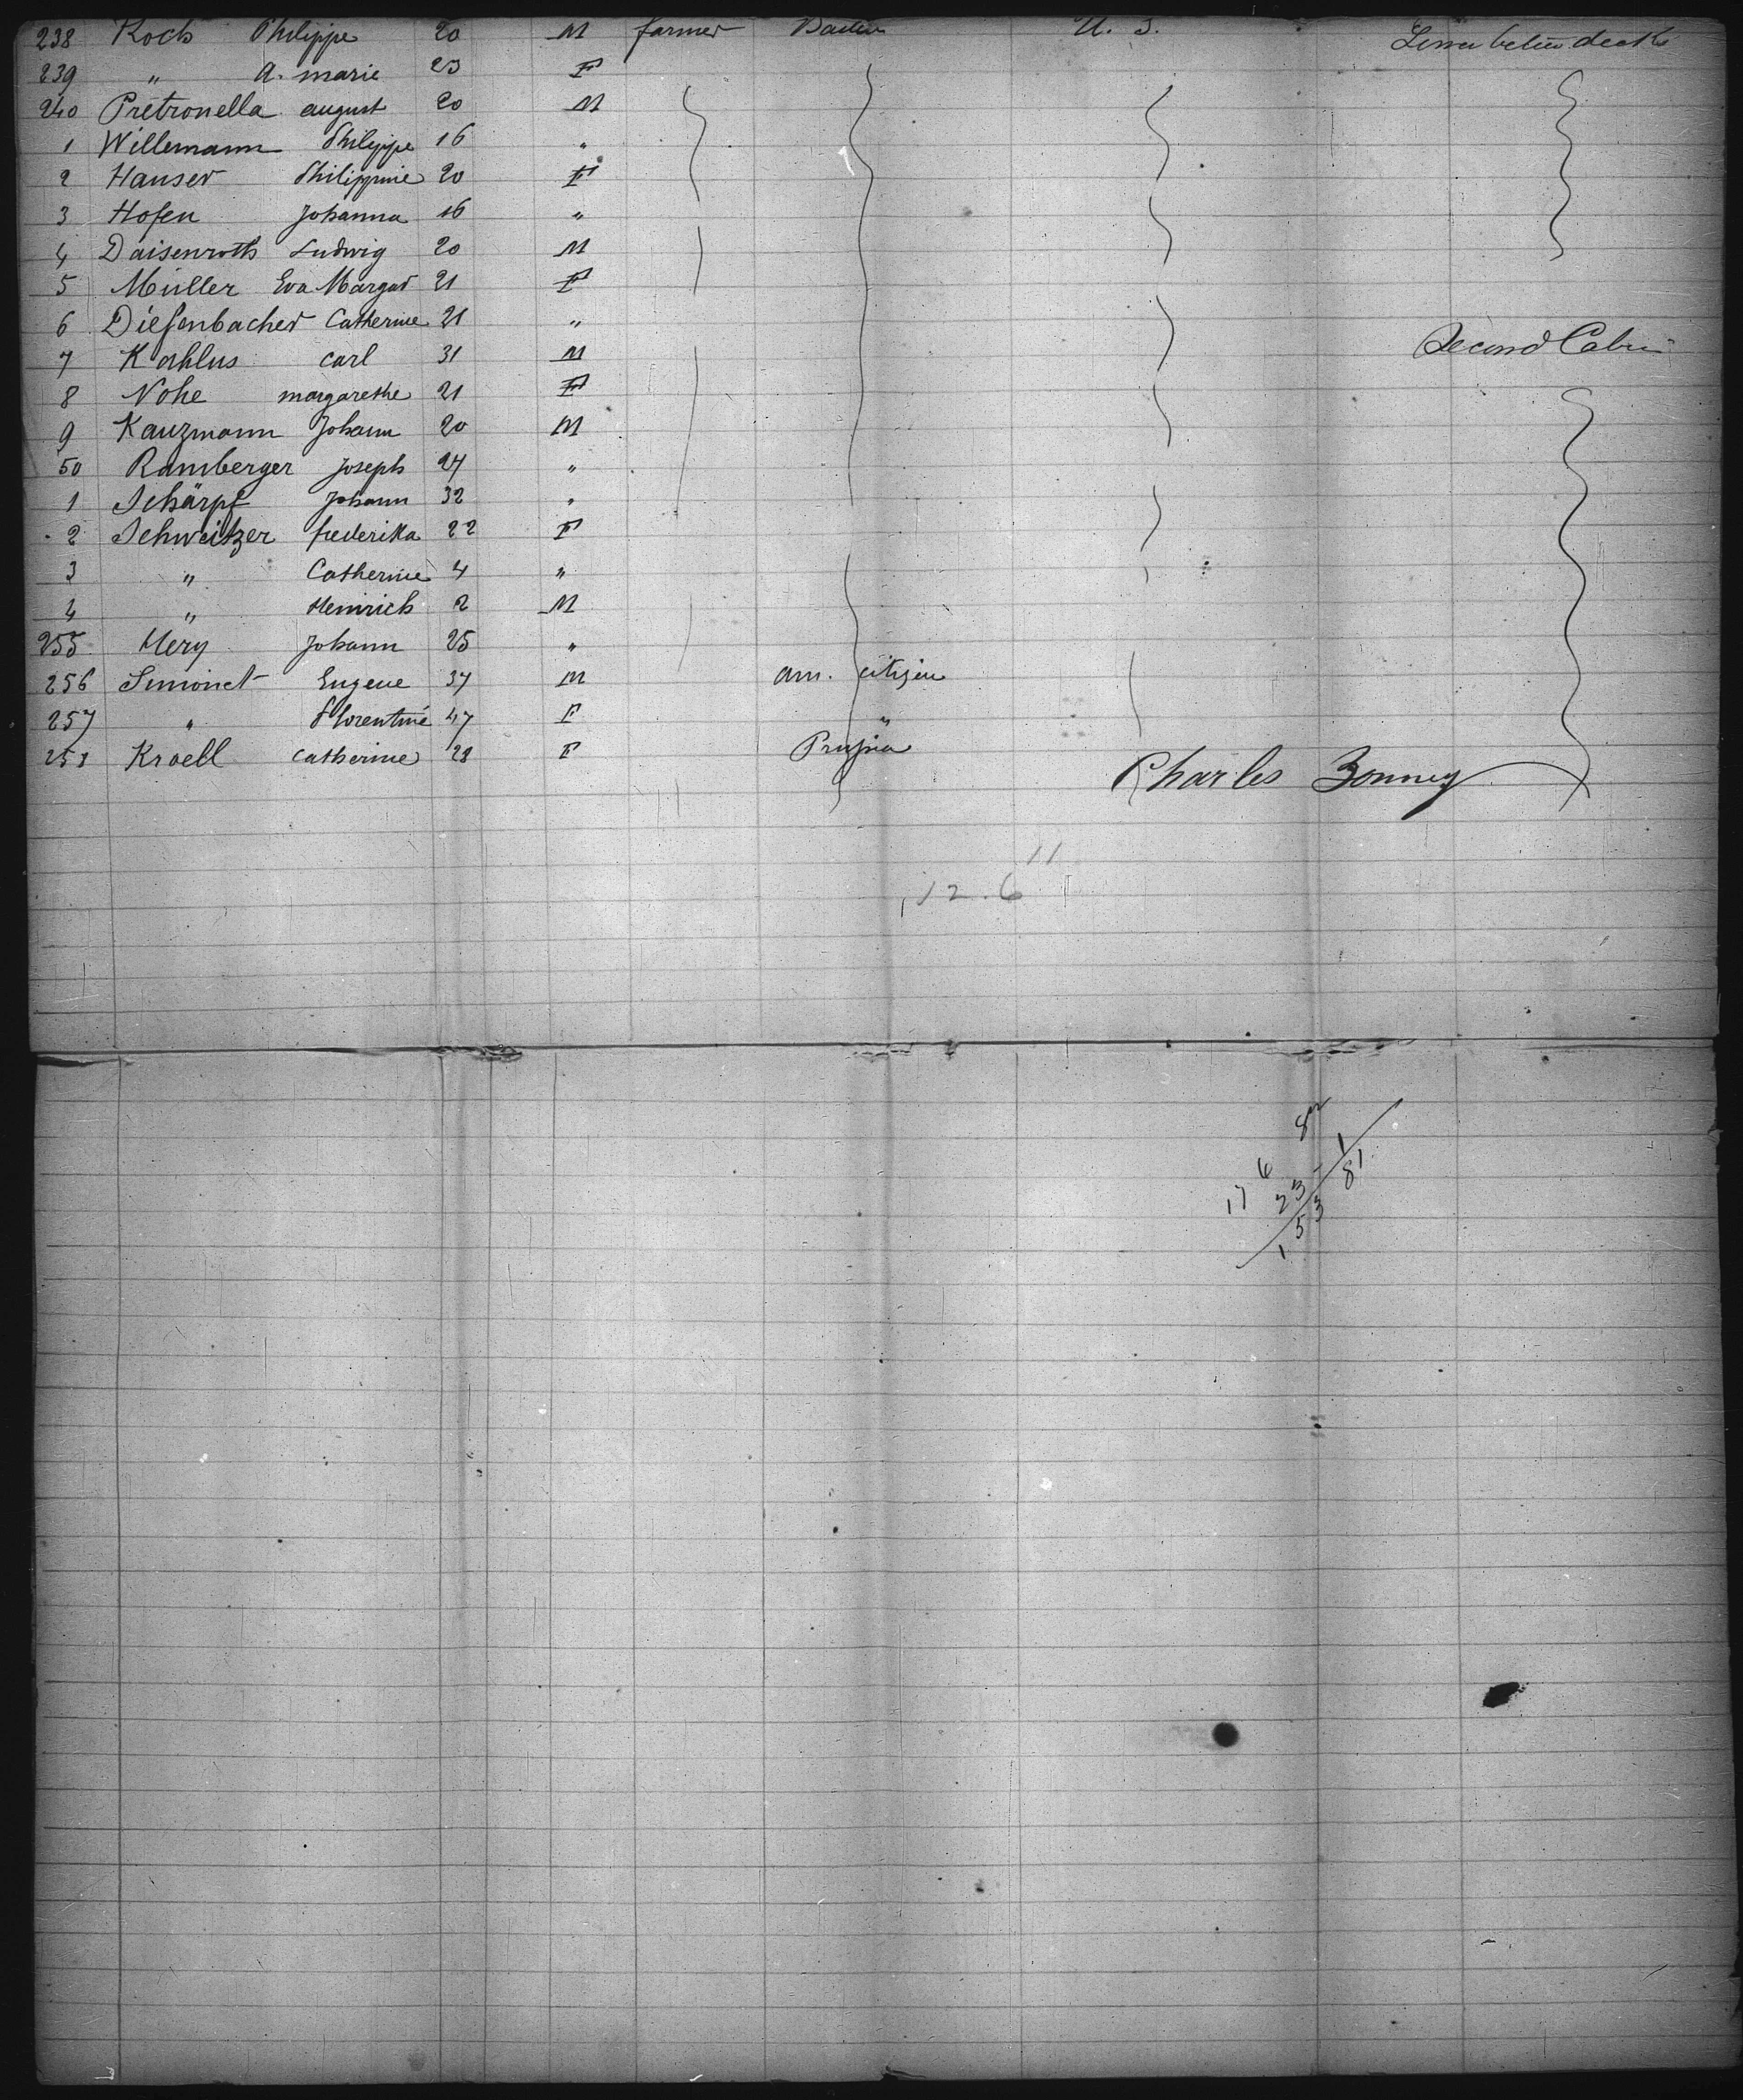 238 Koch Philippe 20 M farmer Baden U. S. Lower betw. deck
239 " A. marie 23 F
240 Pretronella august 20 M
1 Willemann Philippe 16 "
2 Hauser Philippine 20 F
3 Hofen Johanna 16 "
4 Daisenroth Ludwig 20 M
5 Müller Eva Margar 21 F
6 Diefenbacher Catherine 21 "
7 Kahlus Carl 31 M Second Cabin
8 Nohe margarethe 21 F
9 Kauzmann Johann 20 M
50 Ramberger Joseph 24 "
1 Schärpf Johann 32 "
2 Schweitzer frederika 22 F
3 " Catherine 4 "
4 " Heinrich 2 M
255 Hery Johann 25 "
256 Simonet Eugene 37 M am. citizen
257 " Florentine 47 F "
258 Kroell Catherine 28 F Prussia
Charles Bonney
11
12.6
82
1
176
23
81
153